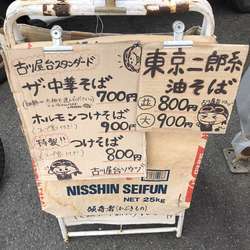 古川屋台スタンダード
ザ・中華そば
700円
ホルモンつけそば
900円
特製!!つけそば
800円
古川屋台ソウワン
東京二郎系
油そば
並 800円
大 900円
NISSHIN SEIFUN
NET 25kg